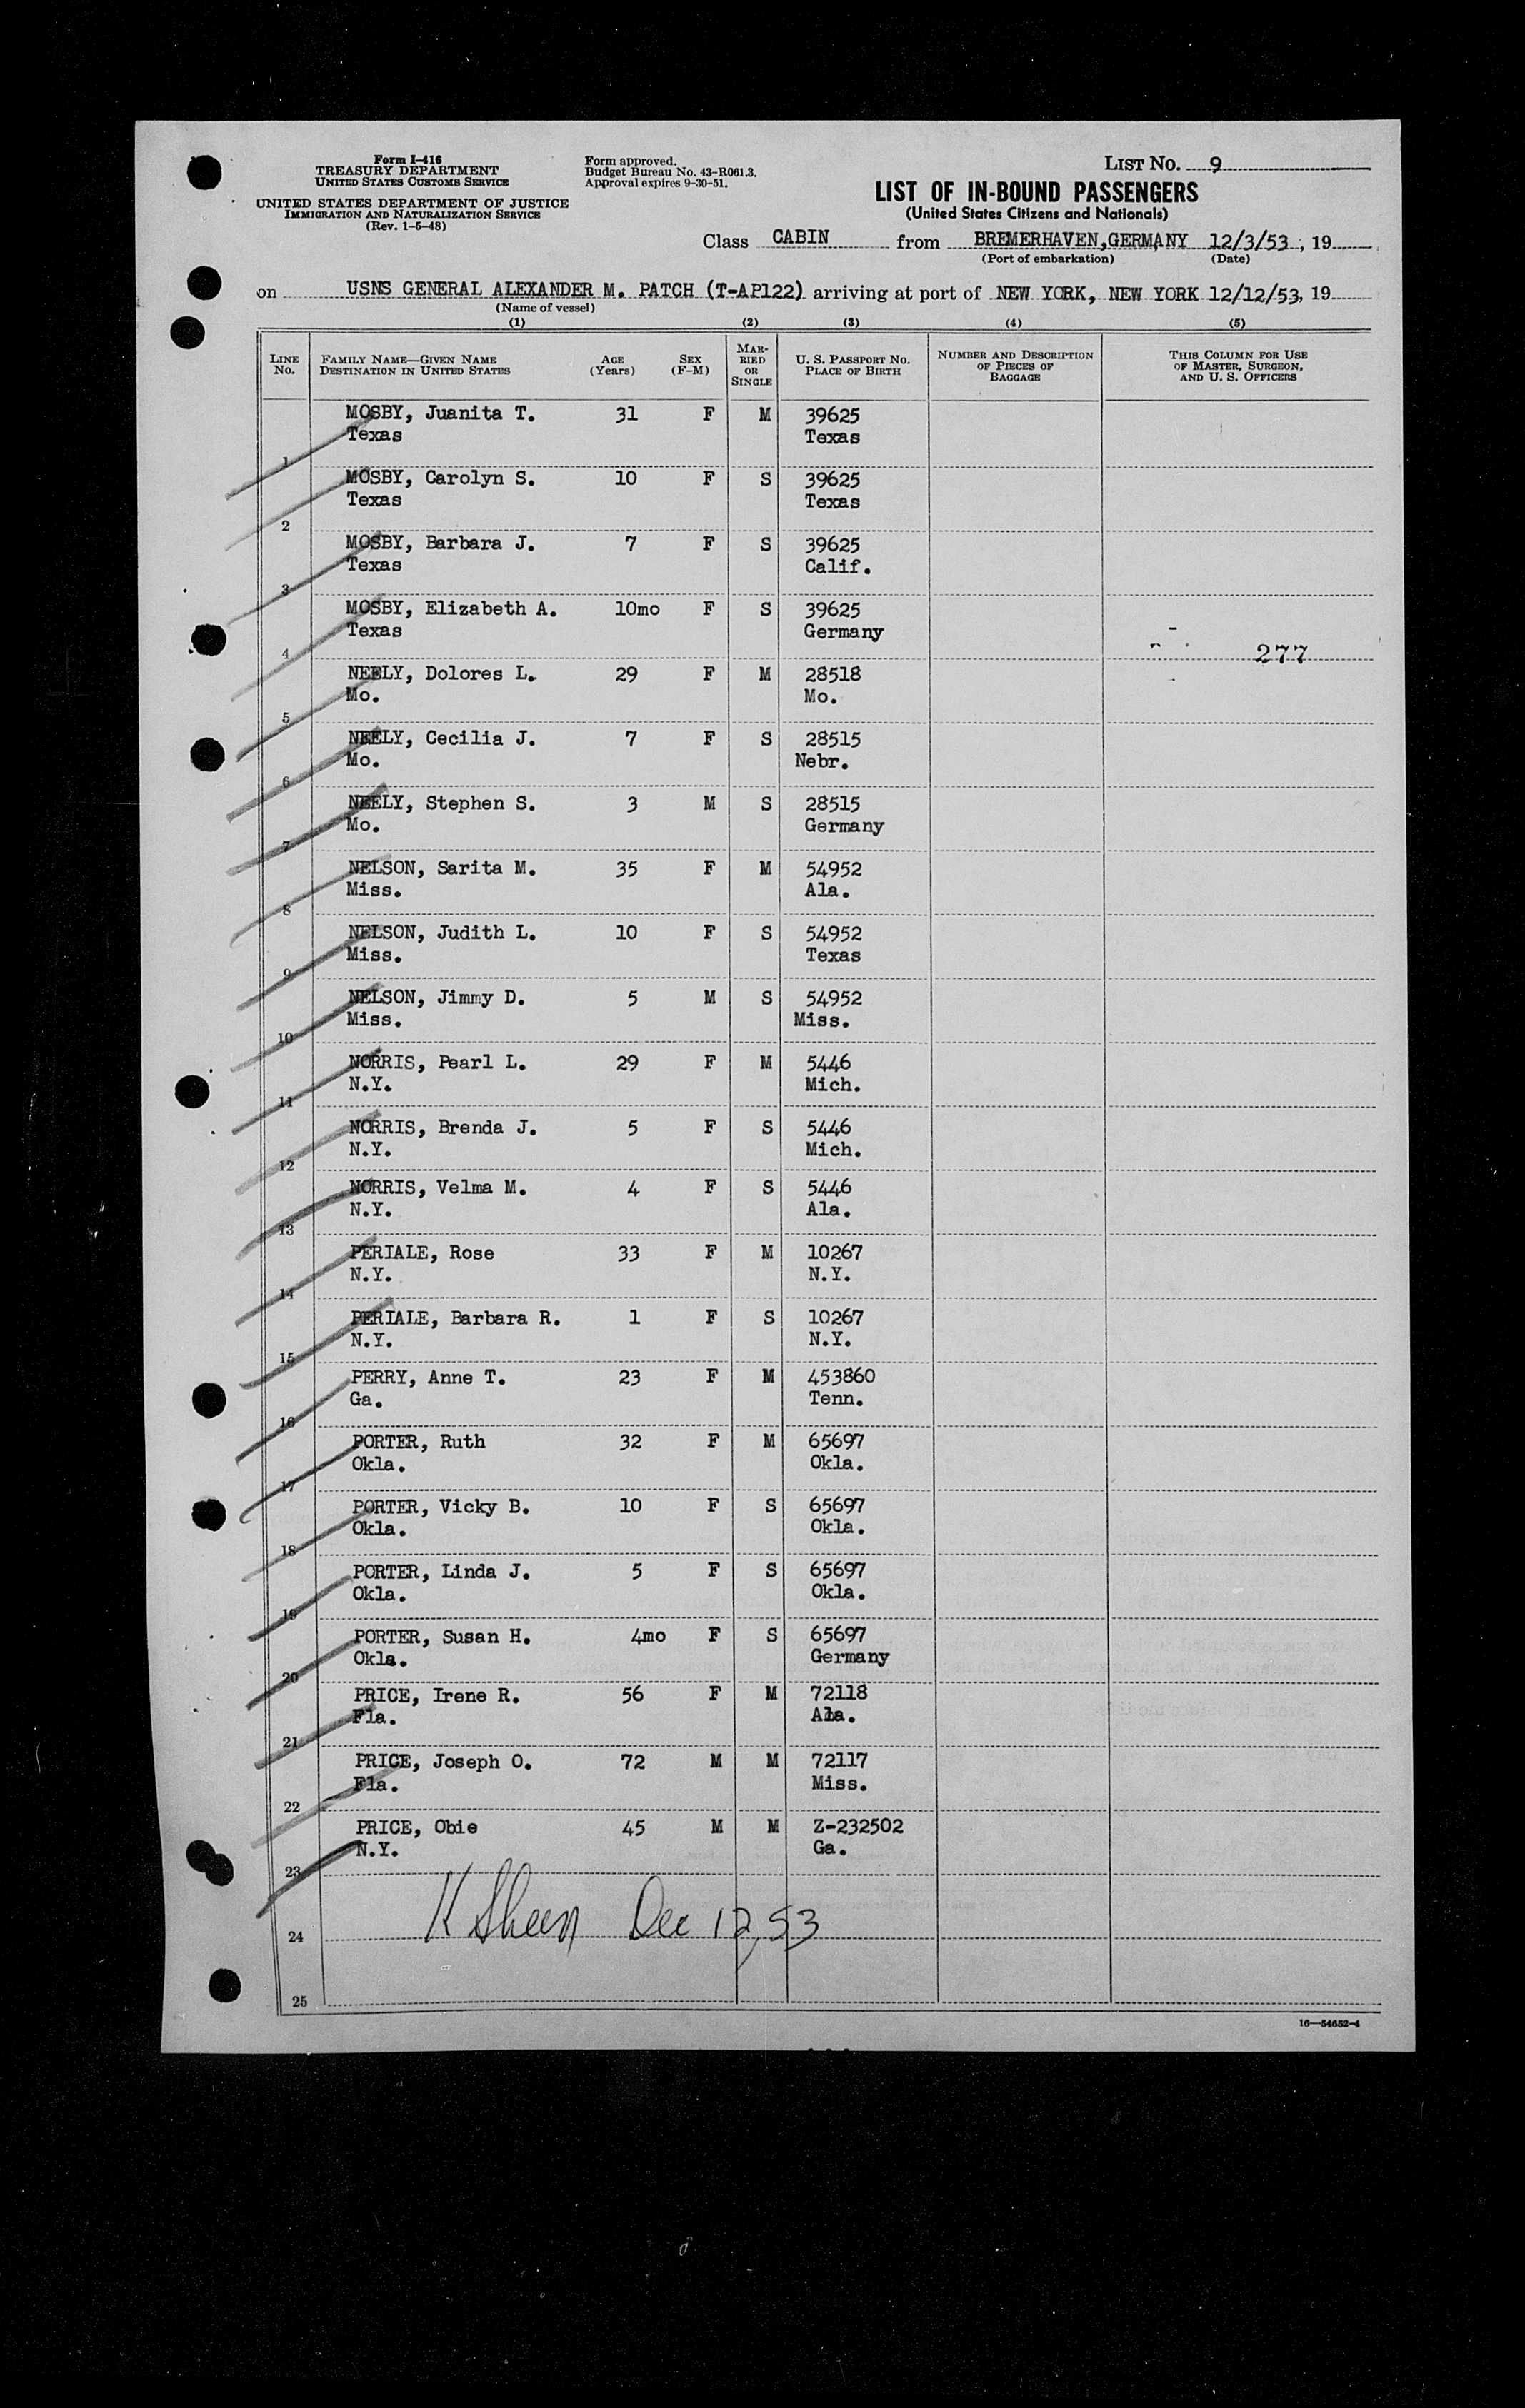 Form I-416
TREASURY DEPARTMENT
UNITED STATES CUSTOMS SERVICE
UNITED STATES DEPARTMENT OF JUSTICE
IMMIGRATION AND NATURALIZATION SERVICE
(Rev. 1-5-48)
Form approved.
Budget Bureau No. 43-R061.3.
Approval expires 9-30-51.
LIST NO. 9
LIST OF IN-BOUND PASSENGERS
(United States Citizens and Nationals)
Class CABIN from BREMERHAVEN,GERMANY 12/3/53, 19
(Port of embarkation) (Date)
on USNS GENERAL ALEXANDER M. PATCH (T-AP122) arriving at port of NEW YORK, NEW YORK 12/12/53, 19
(Name of vessel)
(1) (2) (3) (4) (5)
LINE NO. FAMILY NAME—GIVEN NAME DESTINATION IN UNITED STATES AGE (Years) SEX (F-M) MARRIED OR SINGLE U. S. PASSPORT NO. PLACE OF BIRTH NUMBER AND DESCRIPTION OF PIECES OF BAGGAGE THIS COLUMN FOR USE OF MASTER, SURGEON, AND U. S. OFFICERS
MOSBY, Juanita T. 31 F M 39625
1 Texas Texas
MOSBY, Carolyn S. 10 F S 39625
2 Texas Texas
MOSBY, Barbara J. 7 F S 39625
3 Texas Calif.
MOSBY, Elizabeth A. 10mo F S 39625
4 Texas Germany
277
NEELY, Dolores L. 29 F M 28518
5 Mo. Mo.
NEELY, Cecilia J. 7 F S 28515
6 Mo. Nebr.
NEELY, Stephen S. 3 M S 28515
7 Mo. Germany
NELSON, Sarita M. 35 F M 54952
8 Miss. Ala.
NELSON, Judith L. 10 F S 54952
9 Miss. Texas
NELSON, Jimmy D. 5 M S 54952
10 Miss. Miss.
NORRIS, Pearl L. 29 F M 5446
11 N.Y. Mich.
NORRIS, Brenda J. 5 F S 5446
12 N.Y. Mich.
NORRIS, Velma M. 4 F S 5446
13 N.Y. Ala.
PERIALE, Rose 33 F M 10267
14 N.Y. N.Y.
PERIALE, Barbara R. 1 F S 10267
15 N.Y. N.Y.
PERRY, Anne T. 23 F M 453860
16 Ga. Tenn.
PORTER, Ruth 32 F M 65697
17 Okla. Okla.
PORTER, Vicky B. 10 F S 65697
18 Okla. Okla.
PORTER, Linda J. 5 F S 65697
19 Okla. Okla.
PORTER, Susan H. 4mo F S 65697
20 Okla. Germany
PRICE, Irene R. 56 F M 72118
21 Fla. Ala.
PRICE, Joseph O. 72 M M 72117
22 Fla. Miss.
PRICE, Obie 45 M M Z-232502
23 N.Y. Ga.
24 K Sheen Dec 12, 53
25
16—54652-4